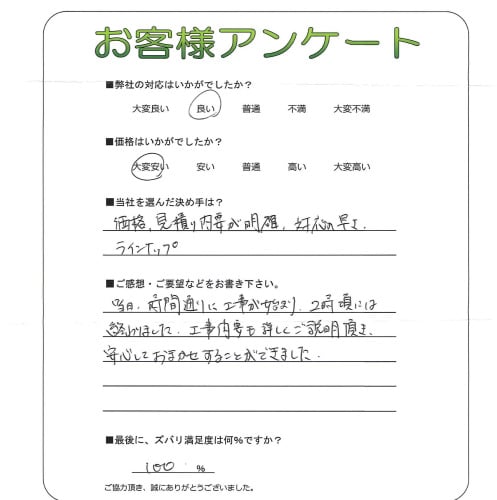 お客様アンケート
■弊社の対応はいかがでしたか？
大変良い 良い 普通 不満 大変不満
■価格はいかがでしたか？
大変安い 安い 普通 高い 大変高い
■当社を選んだ決め手は？
価格，見積り内容が明確，対応の早さ，
ラインナップ
■ご感想・ご要望などをお書き下さい。
当日，時間通りに工事が始まり，2時頃には
終わりました．工事内容も詳しくご説明頂き、
安心しておまかせすることができました．
■最後に、ズバリ満足度は何％ですか？
100 ％
ご協力頂き、誠にありがとうございました。